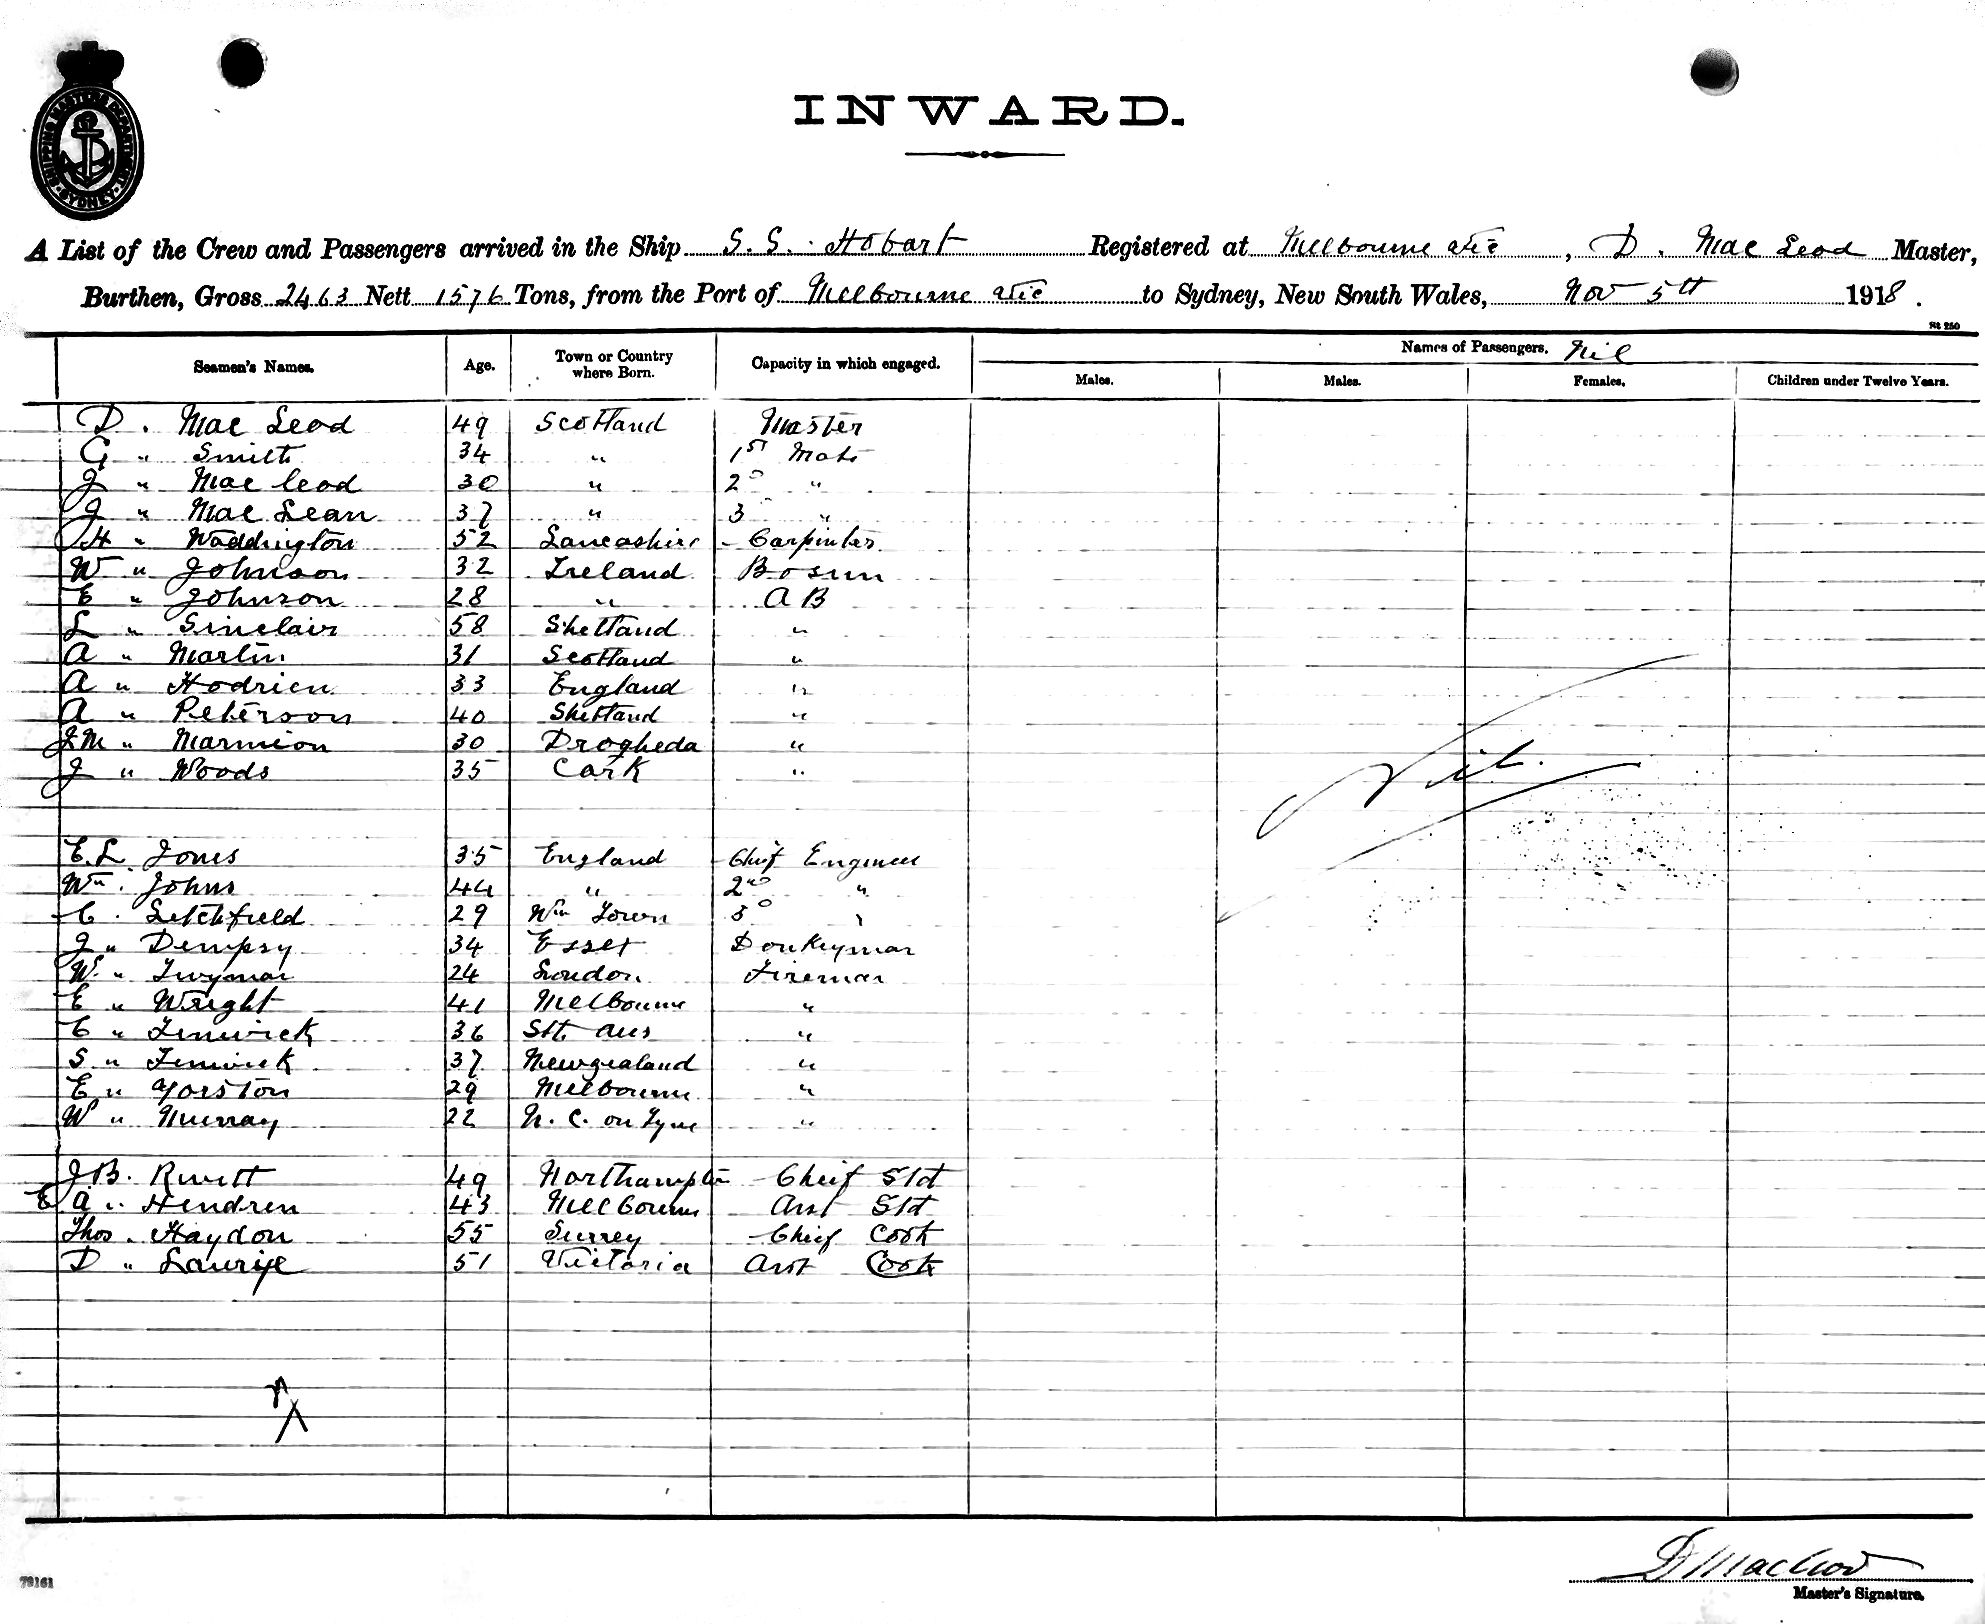 SHIPPING MASTERS DEPARTMENT SYDNEY
INWARD.
A List of the Crew and Passengers arrived in the Ship S.S. Hobart Registered at Melbourne Vic, D. Mac Leod Master,
Burthen, Gross 2463 Nett 1576 Tons, from the Port of Melbourne Vic to Sydney, New South Wales, Nov 5th 1918.
St 250
Seamen's Names. Age. Town or Country where Born. Capacity in which engaged. Names of Passengers. Nil
Males. Males. Females. Children under Twelve Years.
D. Mac Leod 49 Scotland Master
G " Smith 34 " 1st Mate
J " Mac leod 30 " 2D "
J " Mac Lean 37 " 3 "
H " Waddington 52 Lancashire - Carpinter
W " Johnson 32 Ireland Bosun
E " Johnson 28 " AB
L " Sinclair 58 Shetland "
A " Martin 31 Scotland "
A " Hodrien 33 England "
A " Peterson 40 Shetland "
J M " Marmion 30 Drogheda "
J " Woods 35 Cark "
Nil.
E. L Jones 35 England Chief Engineer
Wm. Johns 44 " 2nd "
C. Letchfield 29 Wm Town 3D "
J " Dempsy 34 Essex Donkeyman
W. " Twyman 24 London Fireman
E " Wright 41 Melbourne "
C " Fenwick 36 Sth Aus "
S " Fenwick 37 Newzealand "
E " Yorston 29 Melbourne "
W " Murray 22 N. C. on Tyne "
J B. Rivett 49 Northampton Chief Std
E A " Hendren 43 Melbourne Asst Std
Thos. Haydon 55 Surrey Chief Cook
D " Laurie 51 Victoria Asst Cook
D MacLeod
Master's Signature.
78161